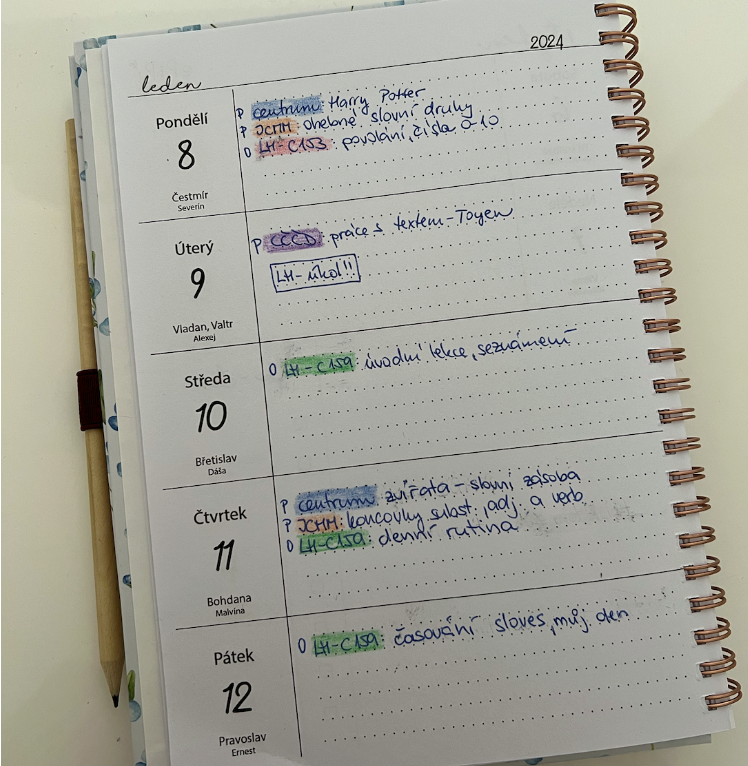 2024
leden
Pondělí
8
Čestmír
Severin
P centrum: Harry Potter
P JCMM: ohebné slovní druhy
O LH-C153: povolání, čísla 0-10
Úterý
9
Vladan, Valtr
Alexej
P CCCD: práce s textem-Toyen
LH-úkol!!
Středa
10
Břetislav
Dáša
O LH-C159: úvodní lekce, seznámení
Čtvrtek
11
Bohdana
Malvína
P centrum: zvířata - slovní zásoba
P JCMM: koncovky subst., adj. a verb
O LH-C159: denní rutina
Pátek
12
Pravoslav
Ernest
O LH-C159: časování sloves, můj den